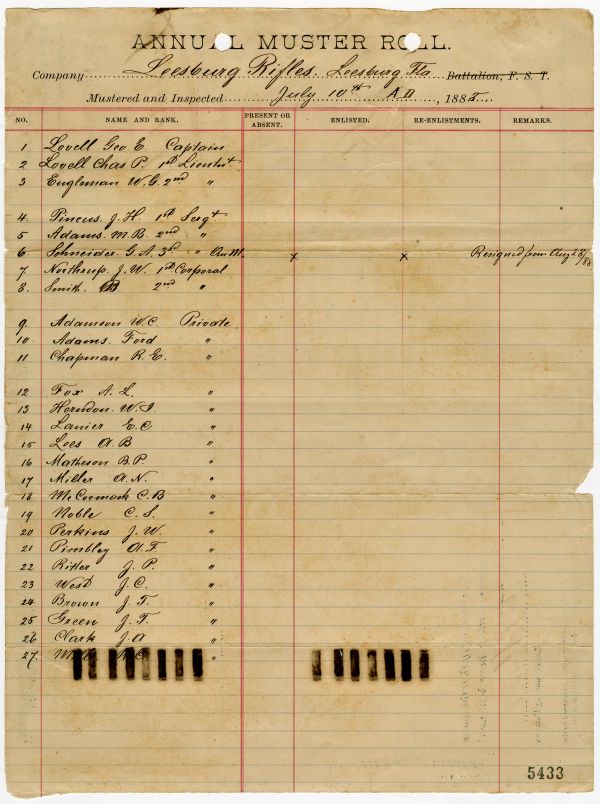 ANNUAL MUSTER ROLL.
Company Leesburg Rifles. Leesburg, Fla Battalion, F. S. T.
Mustered and Inspected July 10th A.D , 1885
NO. NAME AND RANK. PRESENT OR ABSENT. ENLISTED. RE-ENLISTMENTS. REMARKS.
1 Lovell Geo E. Captain
2 Lovell Chas P. 1st Lieutnt
3 Engleman W. G. 2nd "
4. Pincus. J. H. 1st Sergt
5 Adams. M. B. 2nd "
6. Schneider. G. A. 3rd " Qu M. x x Resigned from Aug
7 Northrup. J. W. 1st Corporal
8. Smith. 2nd "
9. Adamson W. C. Private
10. Adams. Ford "
11 Chapman R. E. "
12 Fox A. L. "
13 Herndon. W. I. "
14 Lanier E. C "
15 Lees A. B "
16 Matheson B. P. "
17 Miller A. N. "
18 McCormack C. B "
19 Noble C. S. "
20 Perkins J. W. "
21 Pimbley A. F. "
22 Ritter J. P. "
23 West J. C. "
24 Brown J. T. "
25 Green J. T. "
26 Clark J. A "
27. "
5433